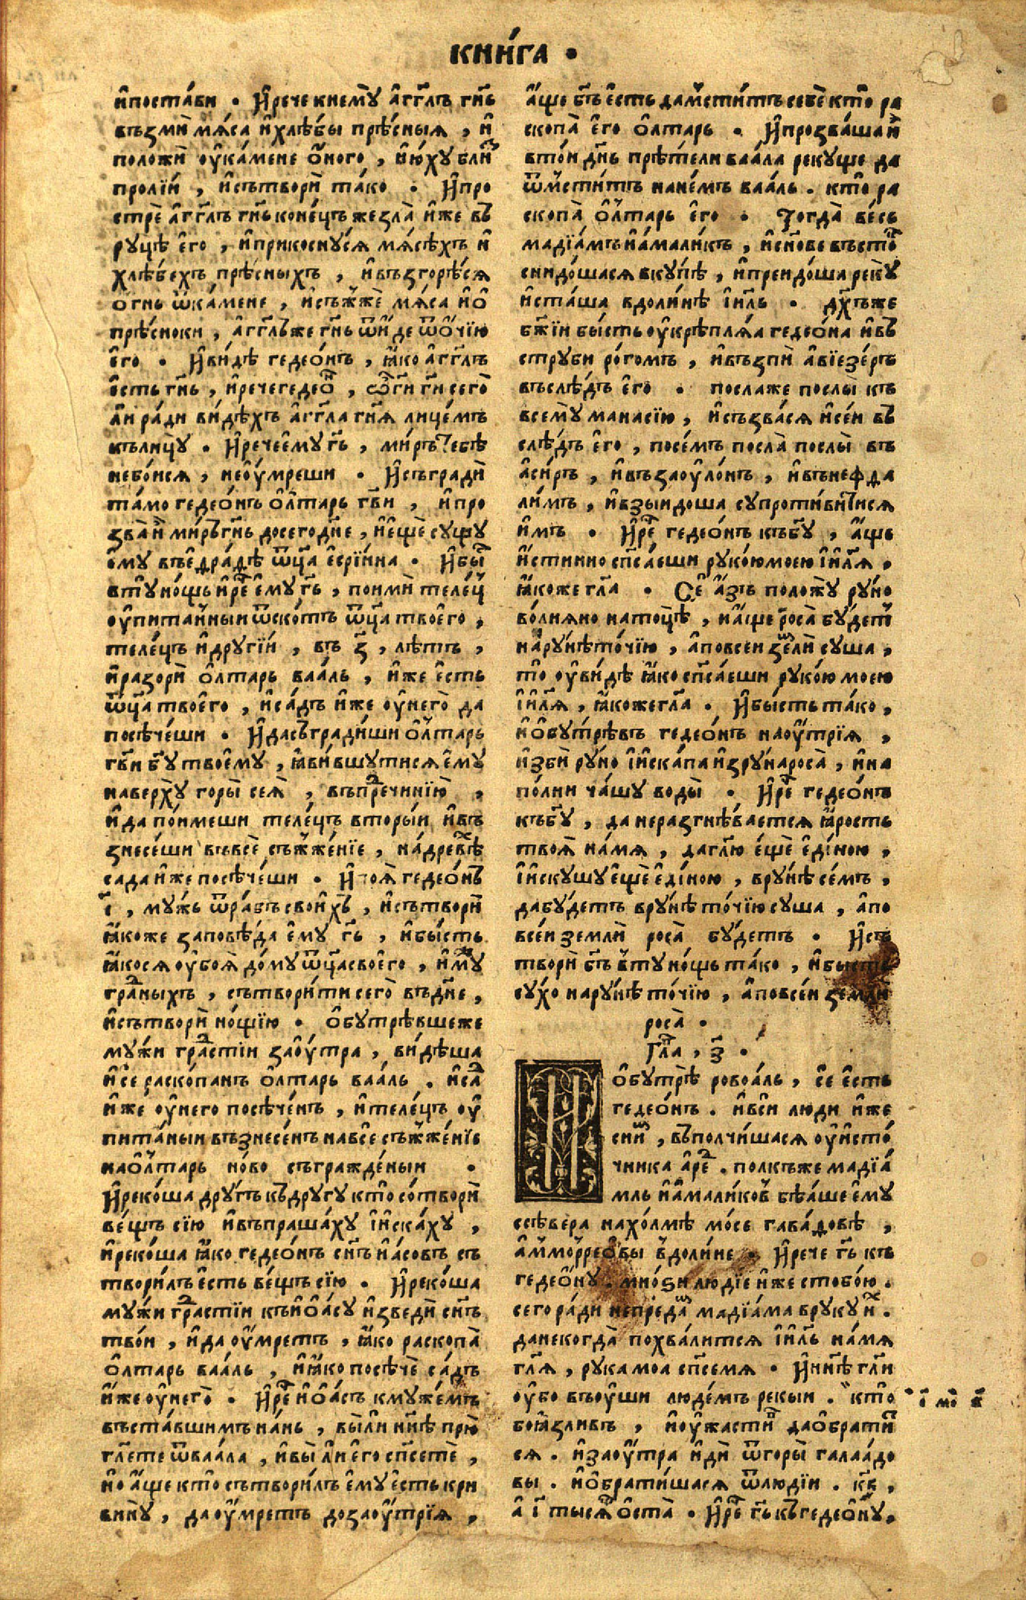 книга ·
ипостави · Ирече кнемꙋ агг҃лъ гн҃ь
възми мѧса ихлѣбы прѣсныѧ , и
положи ѹкамене оного , июхꙋ бли
пролїи , исътвори тако · Ипро
стре агг҃лъ гн҃ь конецъ жезла иже въ
рꙋцѣ его , иприкоснꙋсѧ мѧсѣхъ и
хлѣбехъ прѣсныхъ , ивъзгорѣсѧ
огнь ѿкамене , исъжже мѧса ио
прѣсноки , агг҃лъже гн҃ь ѿиде ѿочїю
его · Ивидѣ гедеонъ , ꙗко агг҃лъ
есть гн҃ь , иречегедео ,
ради видѣхъ агг҃ла гн҃ѧ лицемъ
кълицꙋ · Иречеемꙋ г҃ь , миръ тебѣ
небоисѧ , неѹмреши · Исъгради
тамо гедеонъ олтарь гв҃и , ипро
зва и миръгн҃ь досегоднѐ , иеще сꙋщꙋ
емꙋ въедрадѣ ѿц҃а есрїина · Ибы
втꙋнощь ире емꙋ г҃ь , поими телец
ѹпитанныи ѿскотъ ѿц҃а твоего ,
телецъ идрꙋгїи , въ з҃ , лѣтъ ,
иразори олтарь вааль , иже есть
ѿц҃а твоего , исадъ иже ѹнего да
посѣчеши · Идасъградиши олтарь
гв҃и бг҃ꙋ твоемꙋ , ꙗвившꙋтисѧ емꙋ
наверхꙋ горы сеѧ , въпречинїю ,
ида поимеши телецъ вторыи ивъ
знесеши въвсе съжженїе , надревѣ
сада иже посѣчеши · Ипоѧ гедеонъ
і҃ , мꙋжь ѿрабъ своихъ , исътвори
ꙗкоже заповѣда емꙋ г҃ь , ибысть
ꙗкосѧ ѹбоѧ домꙋ ѿц҃асвоего , имꙋ
граныхъ , сътворитисего въдн҃е ,
исътвори нощїю · обꙋтрѣвшеже
мꙋжи грастїи заѹтра , видѣша
исе раскопанъ олтарь вааль . иса
иже ѹнего посѣченъ , ителецъ ѹ
питаныи възнесенъ навсе съжженїе
наолтарь ново съгражденыи ·
Ирекоша дрꙋгъ къдрꙋгꙋ кто сотвори
вещъ сїю ивъпрашахꙋ иискахꙋ ,
ирекоша ꙗко гедеонъ сн҃ъ иасовъ съ
творилъ есть вещъ сїю · Ирекоша
мꙋжи грастїи къиоасꙋ изведи сн҃ъ
твои , ида ѹмретъ , ꙗко раскопа
олтарь вааль , иꙗко посѣче садъ
иже ѹнего · Ире иоасъ кмꙋжемъ
въставшимъ нань , выли нн҃ѣ прю
гл҃ете ѿваала , ивы ли его сп҃сете ,
но аще кто сътворилъ емꙋ есть кри
винꙋ , да ѹмретъ дозаѹтрїѧ ,
аще бг҃ъ есть даместитъ себе кто ра
скопа его олтарь · Ипрозваша и
втои дн҃ь прѣтели ваала рекꙋще да
ѿмститъ нанемъ вааль . кто ра
скопа олтарь его · Тогда весь
мадїамъ иамаликъ , исн҃ове въсто
снидошасѧ вкꙋпѣ , ипреидоша рекꙋ
исташа вдолинѣ ил҃ь · дх҃ъже
бж҃їи бысть ѹкрѣплѧа гедеона ивъ
стрꙋби рогомъ , ивъзпи авїезеръ
въслѣдъ его · послаже послы къ
всемꙋ манасїю , исъзвасѧ исеи въ
слѣдъ его , посемъ посла послы въ
асиръ , ивъзаѹлонъ , ивънефда
лимъ , ивзыидоша сꙋпротивитисѧ
имъ · Ире гедеонъ къбг҃ꙋ , аще
истинно сп҃саеши рꙋкоюмоею іи҃лѧ ,
ꙗкоже гл҃а · Се азъ положꙋ рꙋно
волнѧно натоцѣ , иаще роса бꙋдет
нарꙋнѣточїю , аповсеи земли сꙋша ,
то ѹвидѣ ꙗко сп҃саеши рꙋкою моею
іи҃лѧ , ꙗкожегл҃а · Ибысть тако ,
иобꙋтрѣвъ гедеонъ наѹтрїѧ ,
изби рꙋно иискапа изрꙋнароса , ина
полни чашꙋ воды · Ире гедеонъ
къбг҃ꙋ , да неразгнѣваетсѧ ꙗрость
твоѧ намѧ , дагл҃ю еще единою ,
иискꙋшꙋ еще единою , врꙋнѣ семъ ,
дабꙋдетъ врꙋнѣ точїю сꙋша , апо
всеи земли роса бꙋдетъ · Исъ
твори бг҃ъ втꙋнощь тако , ибысть
сꙋхо нарꙋнѣ точїю , аповсеи земли
роса ·
Гл҃а , з҃ ·
Иобꙋтрѣ ровоаль , се есть
гедеонъ . ивси люди иже
сним , въполчишасѧ ѹисто
чника аре . полкъже мадїа
мль иамаликов бѣаше емꙋ
сѣвера нахолмѣ мосе гавадовѣ ,
амморрео́вы вдолине · Ирече г҃ь къ
гедеонꙋ . мноѕи людїе иже стобою .
сегоради непредам мадїама врꙋкꙋ и .
данекогда похвалитсѧ іи҃ль намѧ
гл҃ѧ , рꙋка моа сп҃семѧ · Инн҃ѣ гл҃и
ѹбо въѹши людемъ рекыи . кто
боꙗзливъ , иѹжасти даобрати
сѧ . изаѹтра иди ѿгоры галаадо
вы . иобратишасѧ ѿлюдїи . кв҃ ,
а і҃ тысѧ оста · Ире г҃ь къгедеонꙋ ,